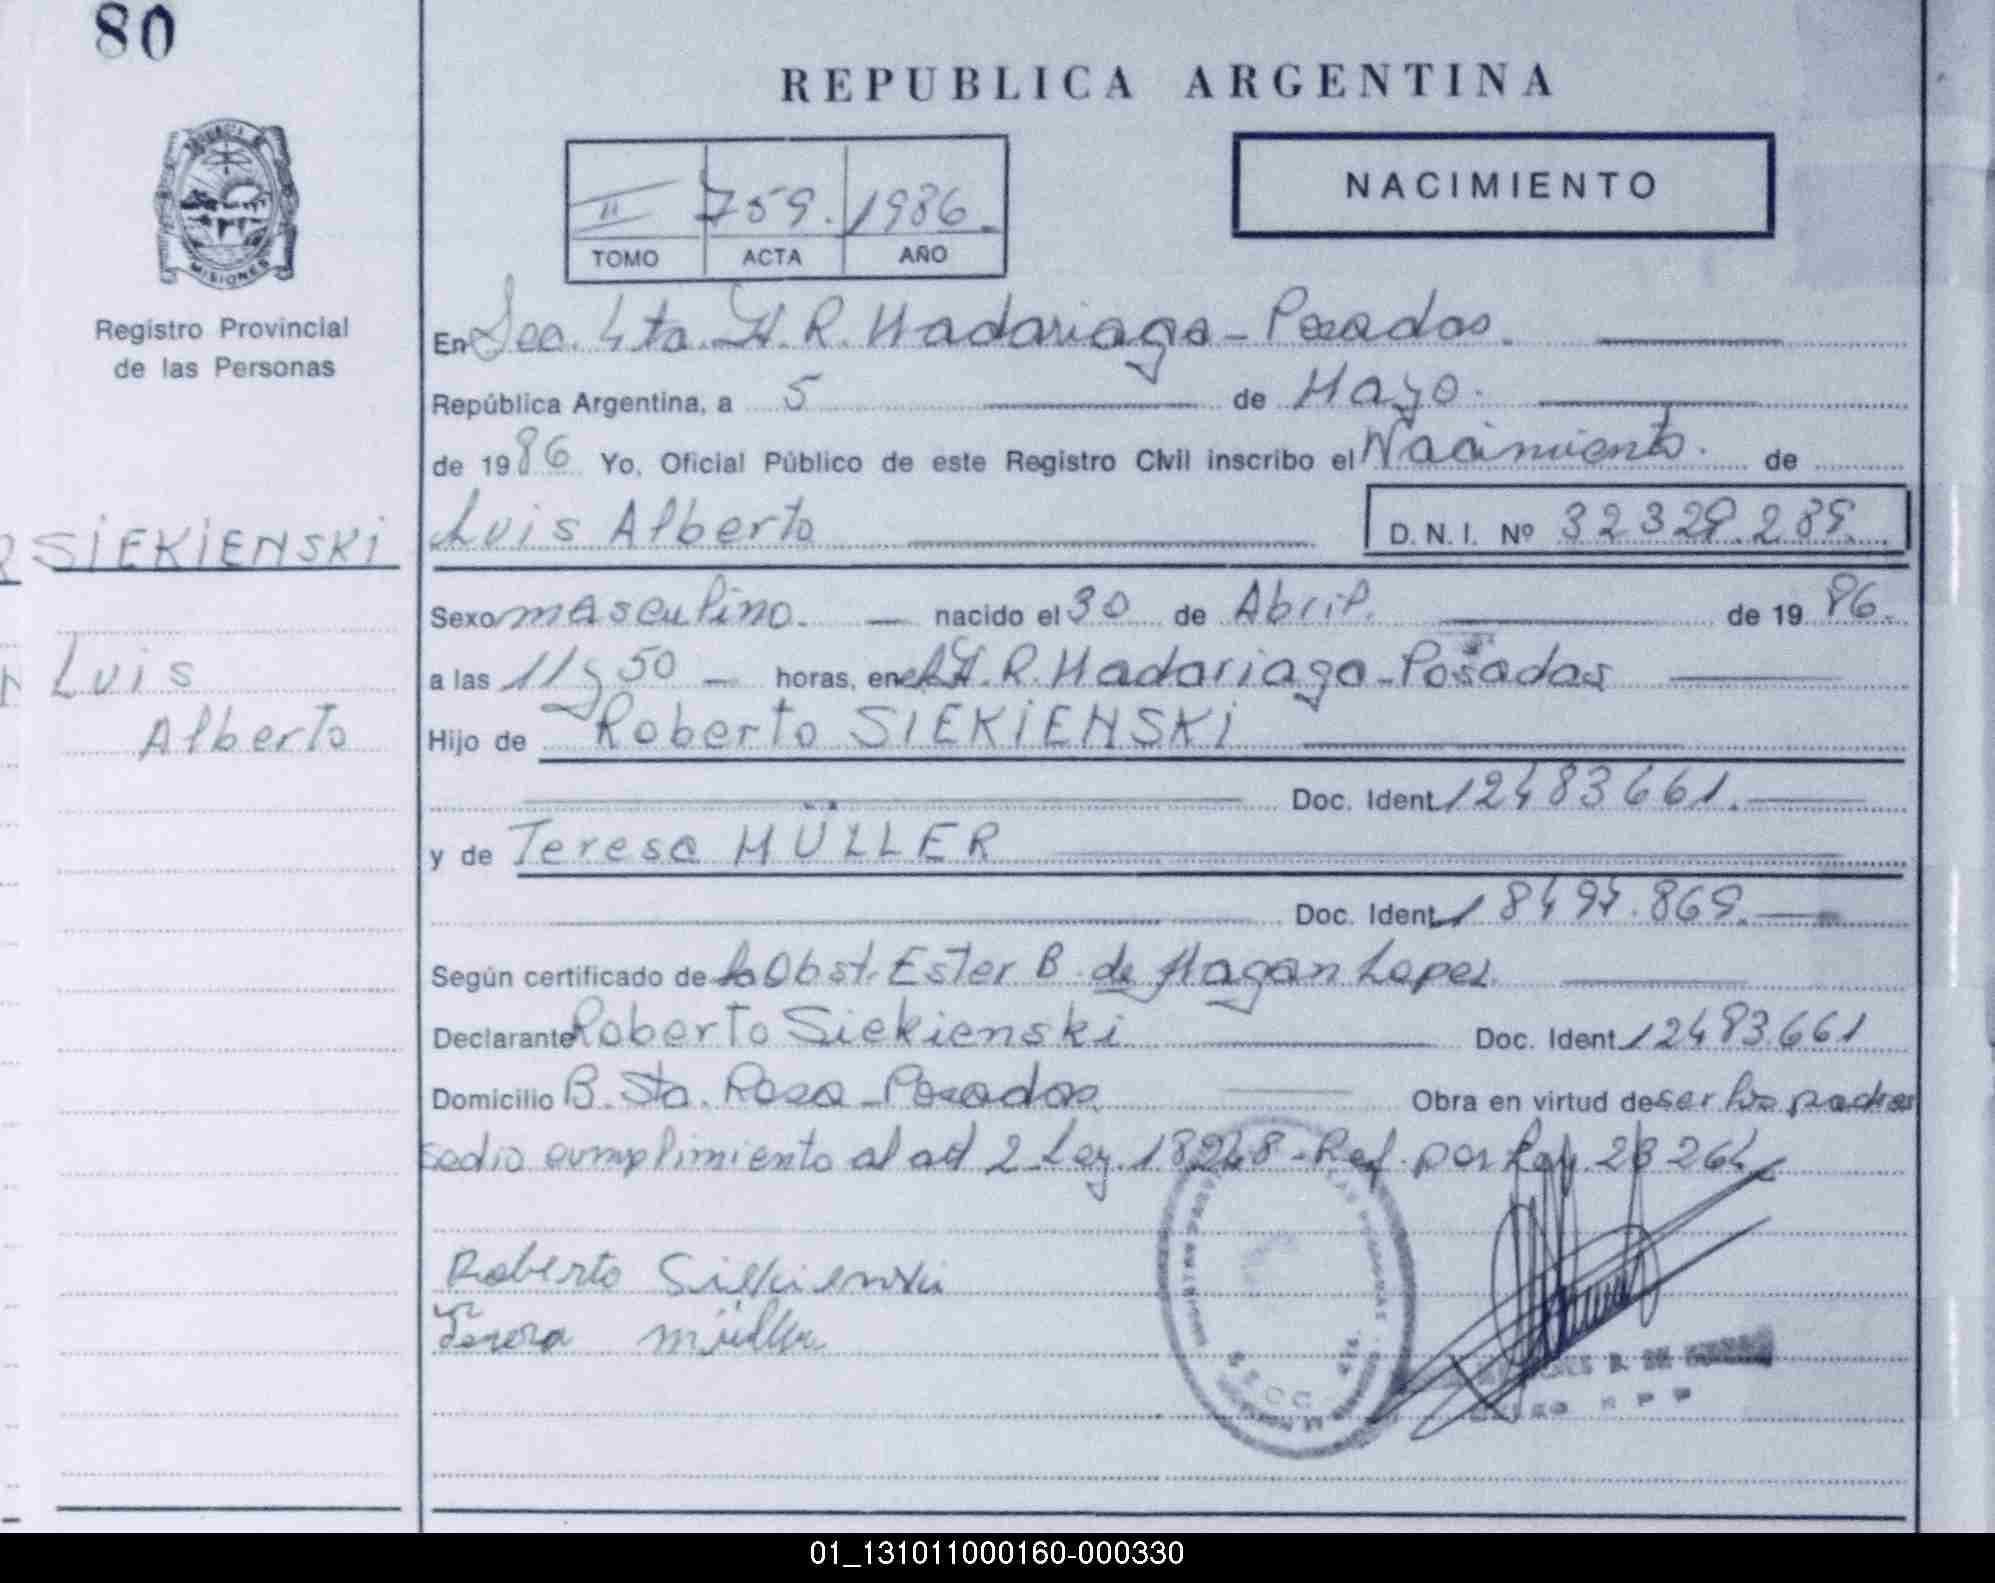 80
REPUBLICA ARGENTINA
NACIMIENTO
II 759. 1986.
TOMO ACTA AÑO
MISIONES
Registro Provincial
de las Personas
En Sec. 4ta. H. R. Madariaga - Posadas.
República Argentina, a 5 de Mayo.
de 1986 Yo, Oficial Público de este Registro Civil inscribo el Nacimiento. de
SIEKIENSKI
Luis Alberto
D. N. I. Nº 32329.289.
Sexo masculino. nacido el 30 de Abril. de 1986.
Luis
Alberto
a las 11 y 50 horas, en el H. R. Madariaga - Posadas
Hijo de Roberto SIEKIENSKI
Doc. Ident. 12483661.
y de Teresa MÜLLER
Doc. Ident. 18494.869.
Según certificado de la Obst. Ester B. de Magan Lopez.
Declarante Roberto Siekienski Doc. Ident. 12483.661
Domicilio B. Sta. Rosa - Posadas. Obra en virtud de ser los padres
se dio cumplimiento al art 2 Ley. 18248 - Ref. por Ley. 23264
Roberto Siekienski
Teresa Müller
01_131011000160-000330